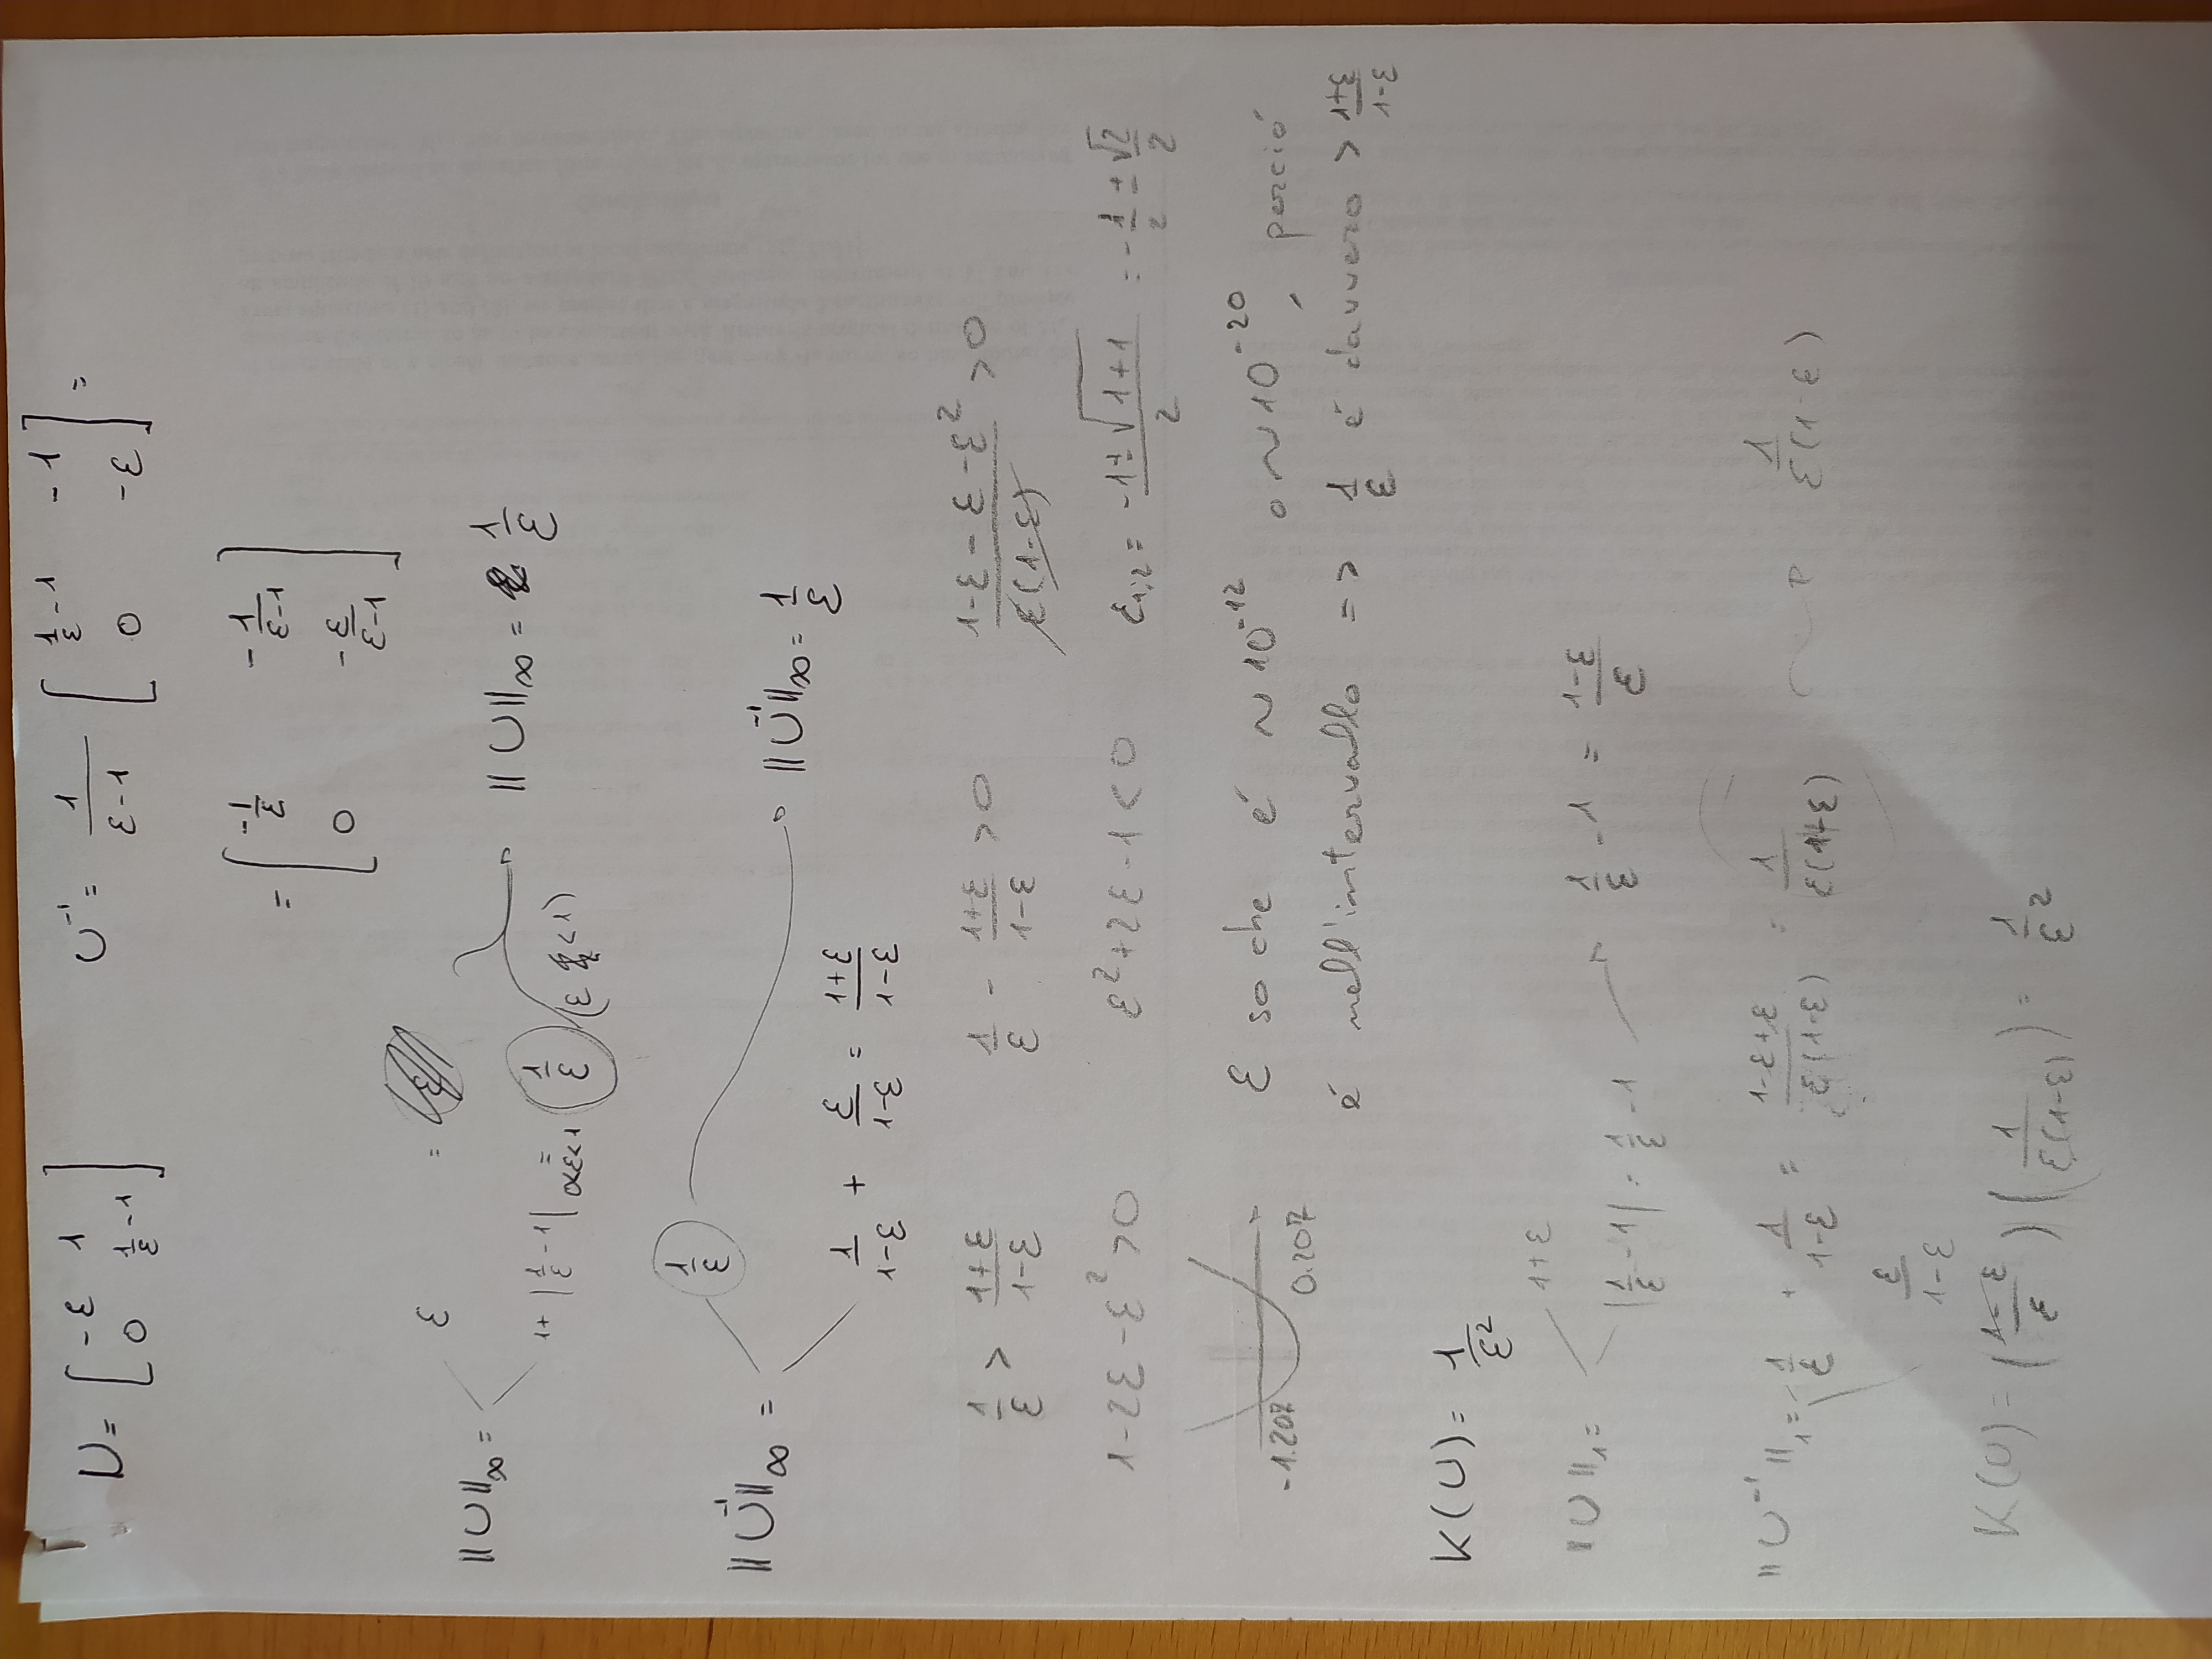 U = [ -ε 1 ; 0 1/ε - 1 ]    U⁻¹ = 1/(ε-1) [ 1/ε - 1  -1 ; 0  -ε ] =
= [ -1/ε  -1/(ε-1) ; 0  -ε/(ε-1) ]
ε =
||U||∞ =
||U||∞ = 1/ε
1 + |1/ε - 1| = 0<ε<1 1/ε (ε < 1)
1/ε
||U⁻¹||∞ =
||U⁻¹||∞ = 1/ε
1/(1-ε) + ε/(1-ε) = (1+ε)/(1-ε)
1/ε > (1+ε)/(1-ε)    1/ε - (1+ε)/(1-ε) > 0    (1-ε-ε-ε²)/(ε(1-ε)) > 0
1-2ε-ε² > 0    ε²+2ε-1 < 0    ε1;2 = (-1±√(1+1))/2 = -1/2 ± √2/2
-1.207 0.207
ε so che é ~10⁻¹² o ~10⁻²⁰, perció
é nell'intervallo => 1/ε é davvero > (1+ε)/(1-ε)
K(U) = 1/ε²
1+ε
||U||1 =
|1/ε - 1| = 1/ε - 1    1/ε - 1 = (1-ε)/ε
||U⁻¹||1 = 1/ε + 1/(1-ε) = (1-ε+ε)/(ε(1-ε)) = 1/(ε(1-ε))    1/(ε(1-ε))
ε/(1-ε)
K(U) = ((1-ε)/ε)(1/(ε(1-ε))) = 1/ε²